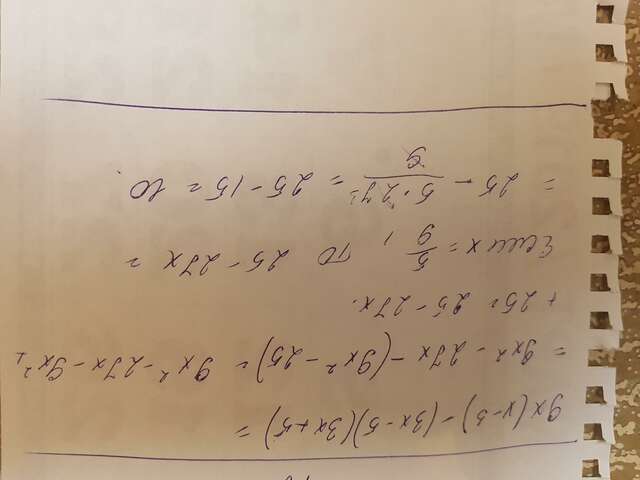 9x(x-3)-(3x-5)(3x+5)=
= 9x²-27x-(9x²-25)= 9x²-27x-9x²+
+25= 25-27x.
Если x=5/9, то 25-27x =
= 25 - 5·27³/9 = 25-15=10.